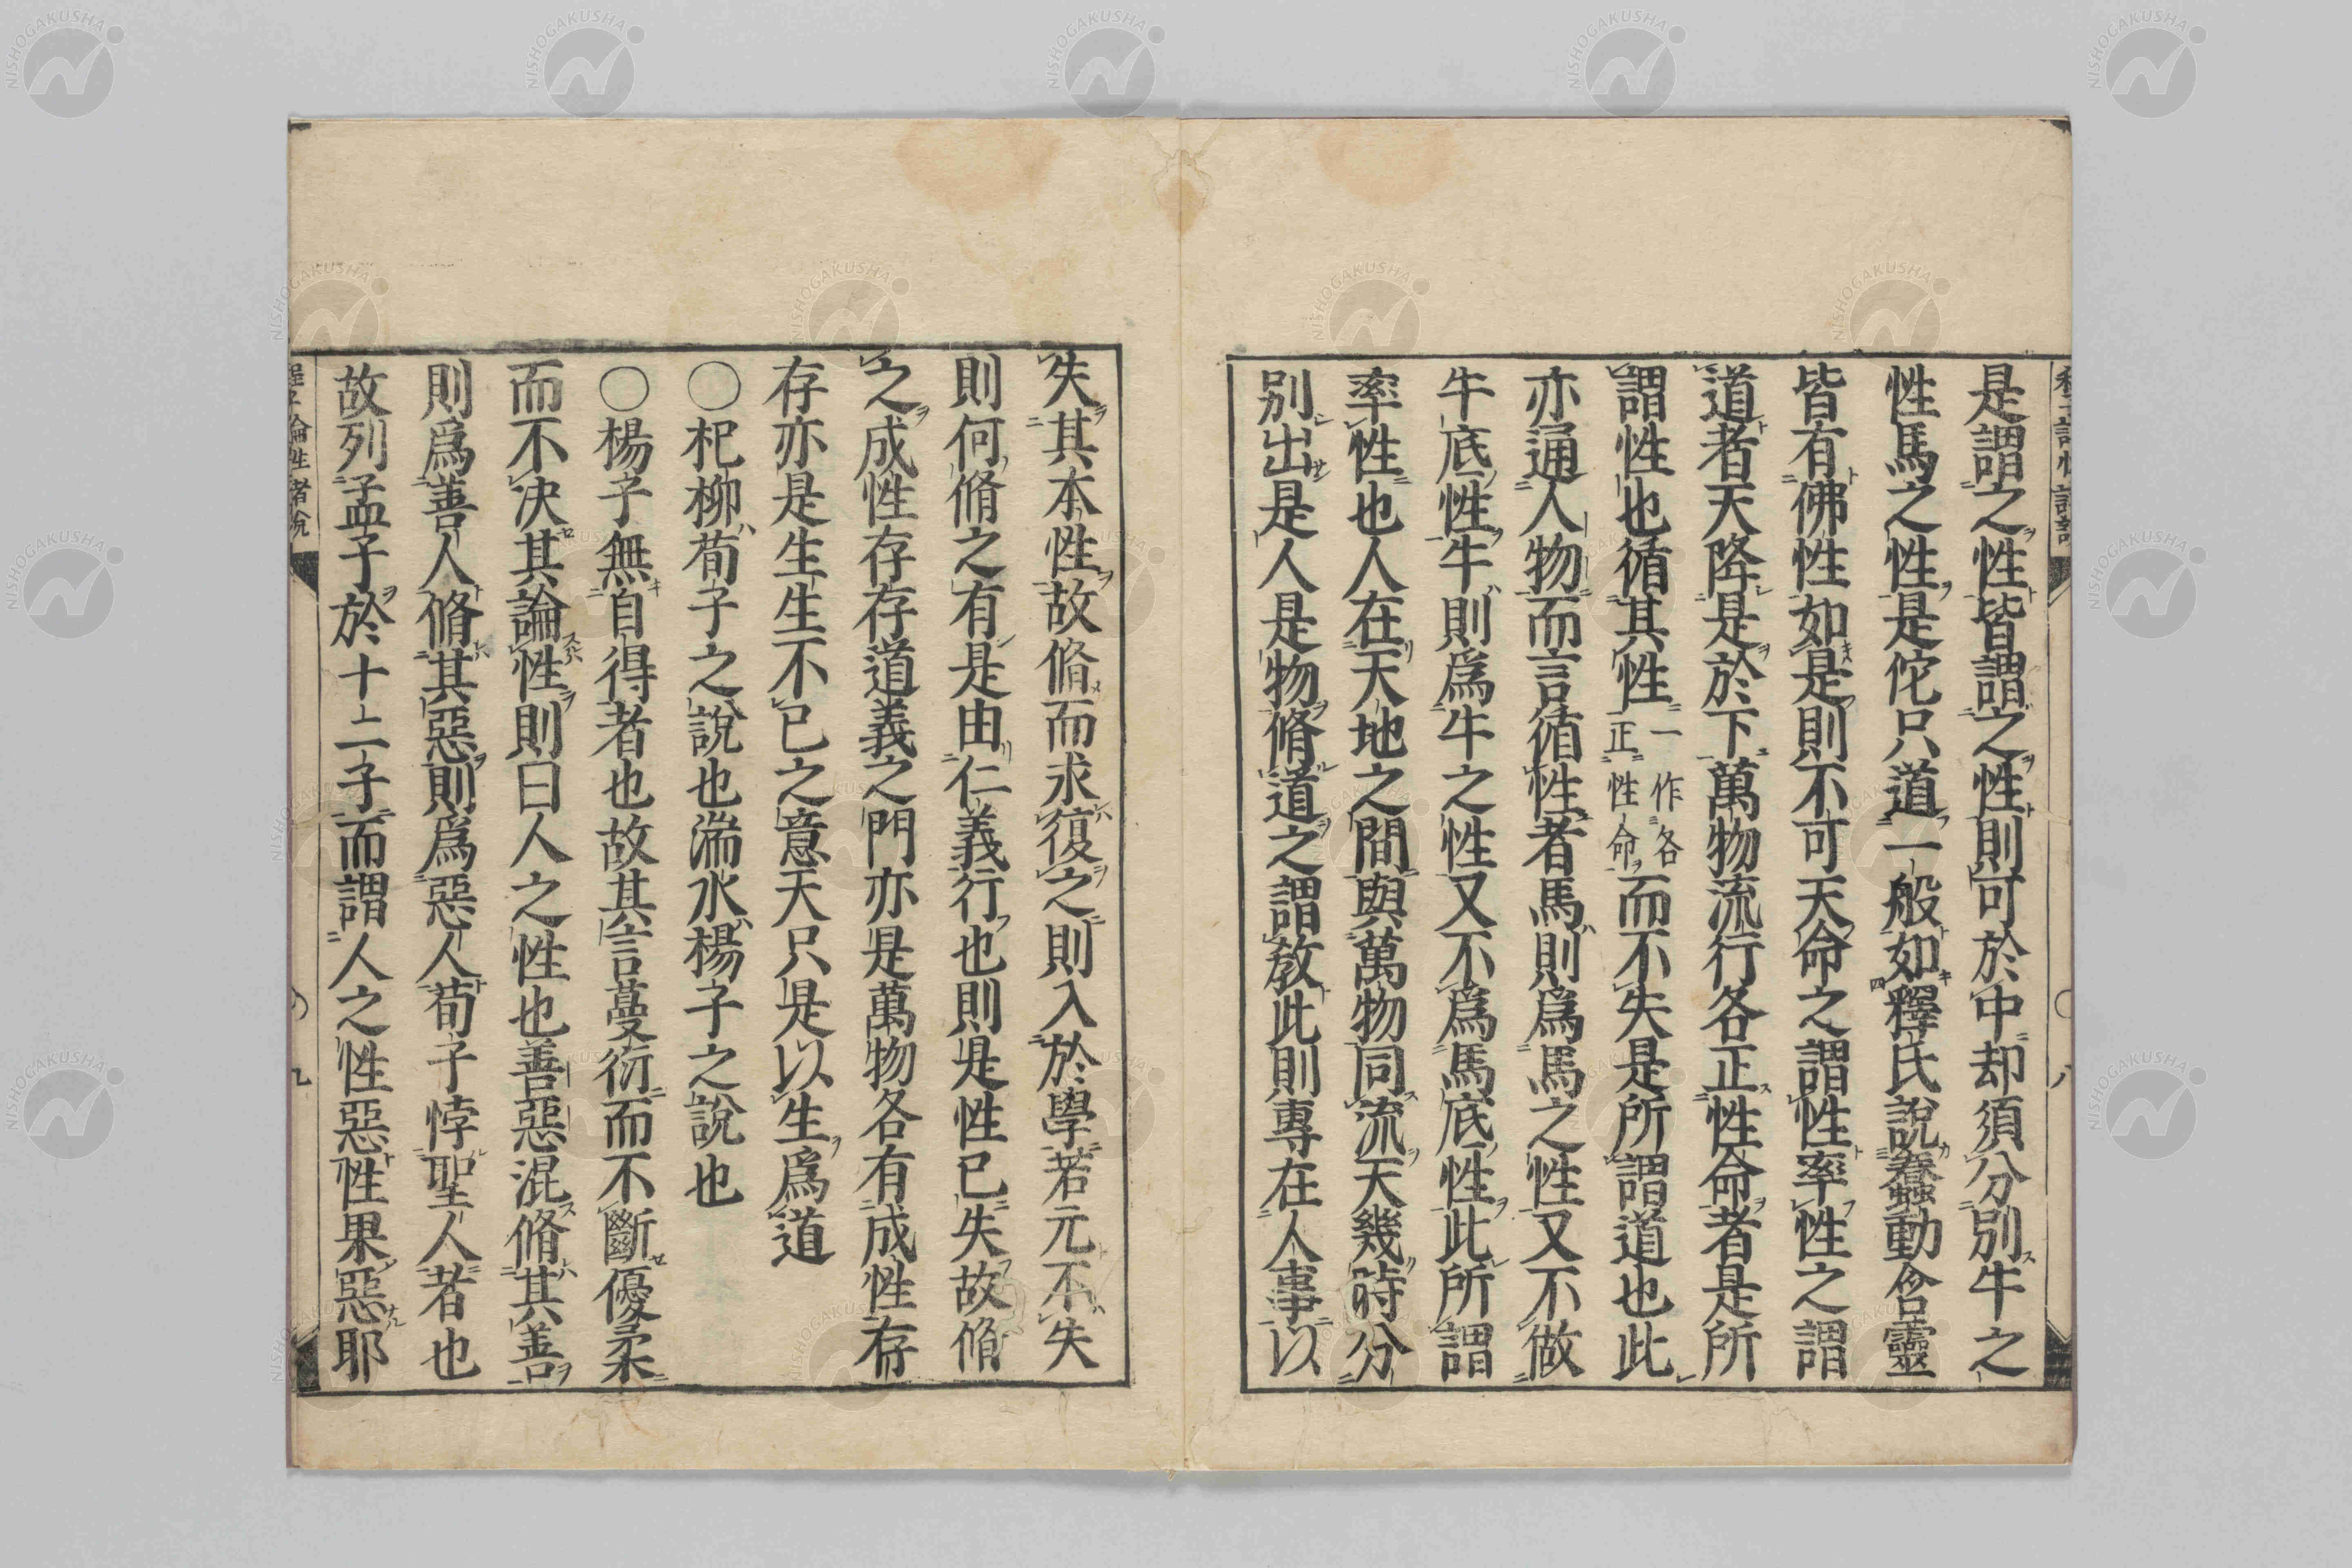 是謂之性皆謂之性則可於中却須分別牛之
性馬之性是佗只道一般如釋氏說蠢動含靈
皆有佛性如是則不可天命之謂性率性之謂
道者天降是於下萬物流行各正性命者是所
謂性也循其性一作各正性命而不失是所謂道也此
亦通人物而言循性者馬則爲馬之性又不做
牛底性牛則爲牛之性又不爲馬底性此所謂
率性也人在天地之間與萬物同流天幾時分
別出是人是物脩道之謂教此則專在人事以
失其本性故脩而求復之則入於學若元不失
則何脩之有是由仁義行也則是性已失故脩
之成性存存道義之門亦是萬物各有成性存
存亦是生生不已之意天只是以生爲道
〇杞柳荀子之說也湍水楊子之說也
〇楊子無自得者也故其言蔓衍而不斷優柔
而不决其論性則曰人之性也善惡混脩其善
則爲善人脩其惡則爲惡人荀子悖聖人者也
故列孟子於十二子而謂人之性惡性果惡耶
程子論性諸說
九
NISHOGAKUSHA